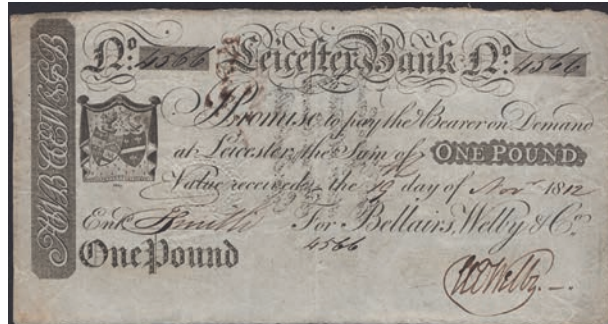 No. 4566 Leicester Bank No. 4566
I Promise to pay the Bearer on Demand
at Leicester the Sum of ONE POUND.
Value received the 19 day of Novr. 1812
Entd. Smith For Bellairs, Welby & Co.
4566
One Pound
WE Welby